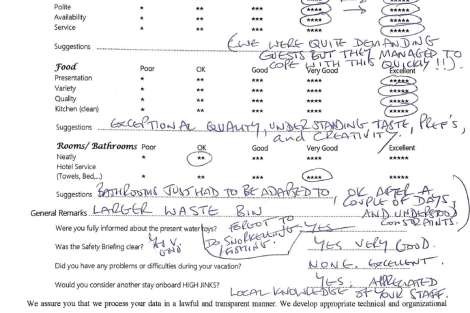 Polite * ** *** **** *****
Availability * ** *** **** *****
Service * ** *** **** *****
(WE WERE QUITE DEMANDING
Suggestions GUESTS BUT THEY MANAGED TO
COPE WITH THIS QUICKLY!!).
Food Poor OK Good Very Good Excellent
Presentation * ** *** **** *****
Variety * ** *** **** *****
Quality * ** *** **** *****
Kitchen (clean) * ** *** **** *****
Suggestions EXCEPTIONAL QUALITY, UNDERSTANDING TASTE, PREF'S,
and CREATIVITY
Rooms/ Bathrooms Poor OK Good Very Good Excellent
Neatly * ** *** **** *****
Hotel Service
(Towels, Bed,..) * ** *** **** *****
Suggestions BATHROOMS JUST HAD TO BE ADAPTED TO, OK AFTER A
COUPLE OF DAYS,
General Remarks LARGER WASTE BIN AND UNDERSTOOD
CONSTRAINTS.
Were you fully informed about the present water toys? FORGOT TO YES
DO SNORKELLING/
FISHING.
Was the Safety Briefing clear? YES VERY GOOD.
Did you have any problems or difficulties during your vacation? NONE. EXCELLENT.
Would you consider another stay onboard HIGH JINKS? YES, APPRECIATED
LOCAL KNOWLEDGE OF YOUR STAFF.
We assure you that we process your data in a lawful and transparent manner. We develop appropriate technical and organizational